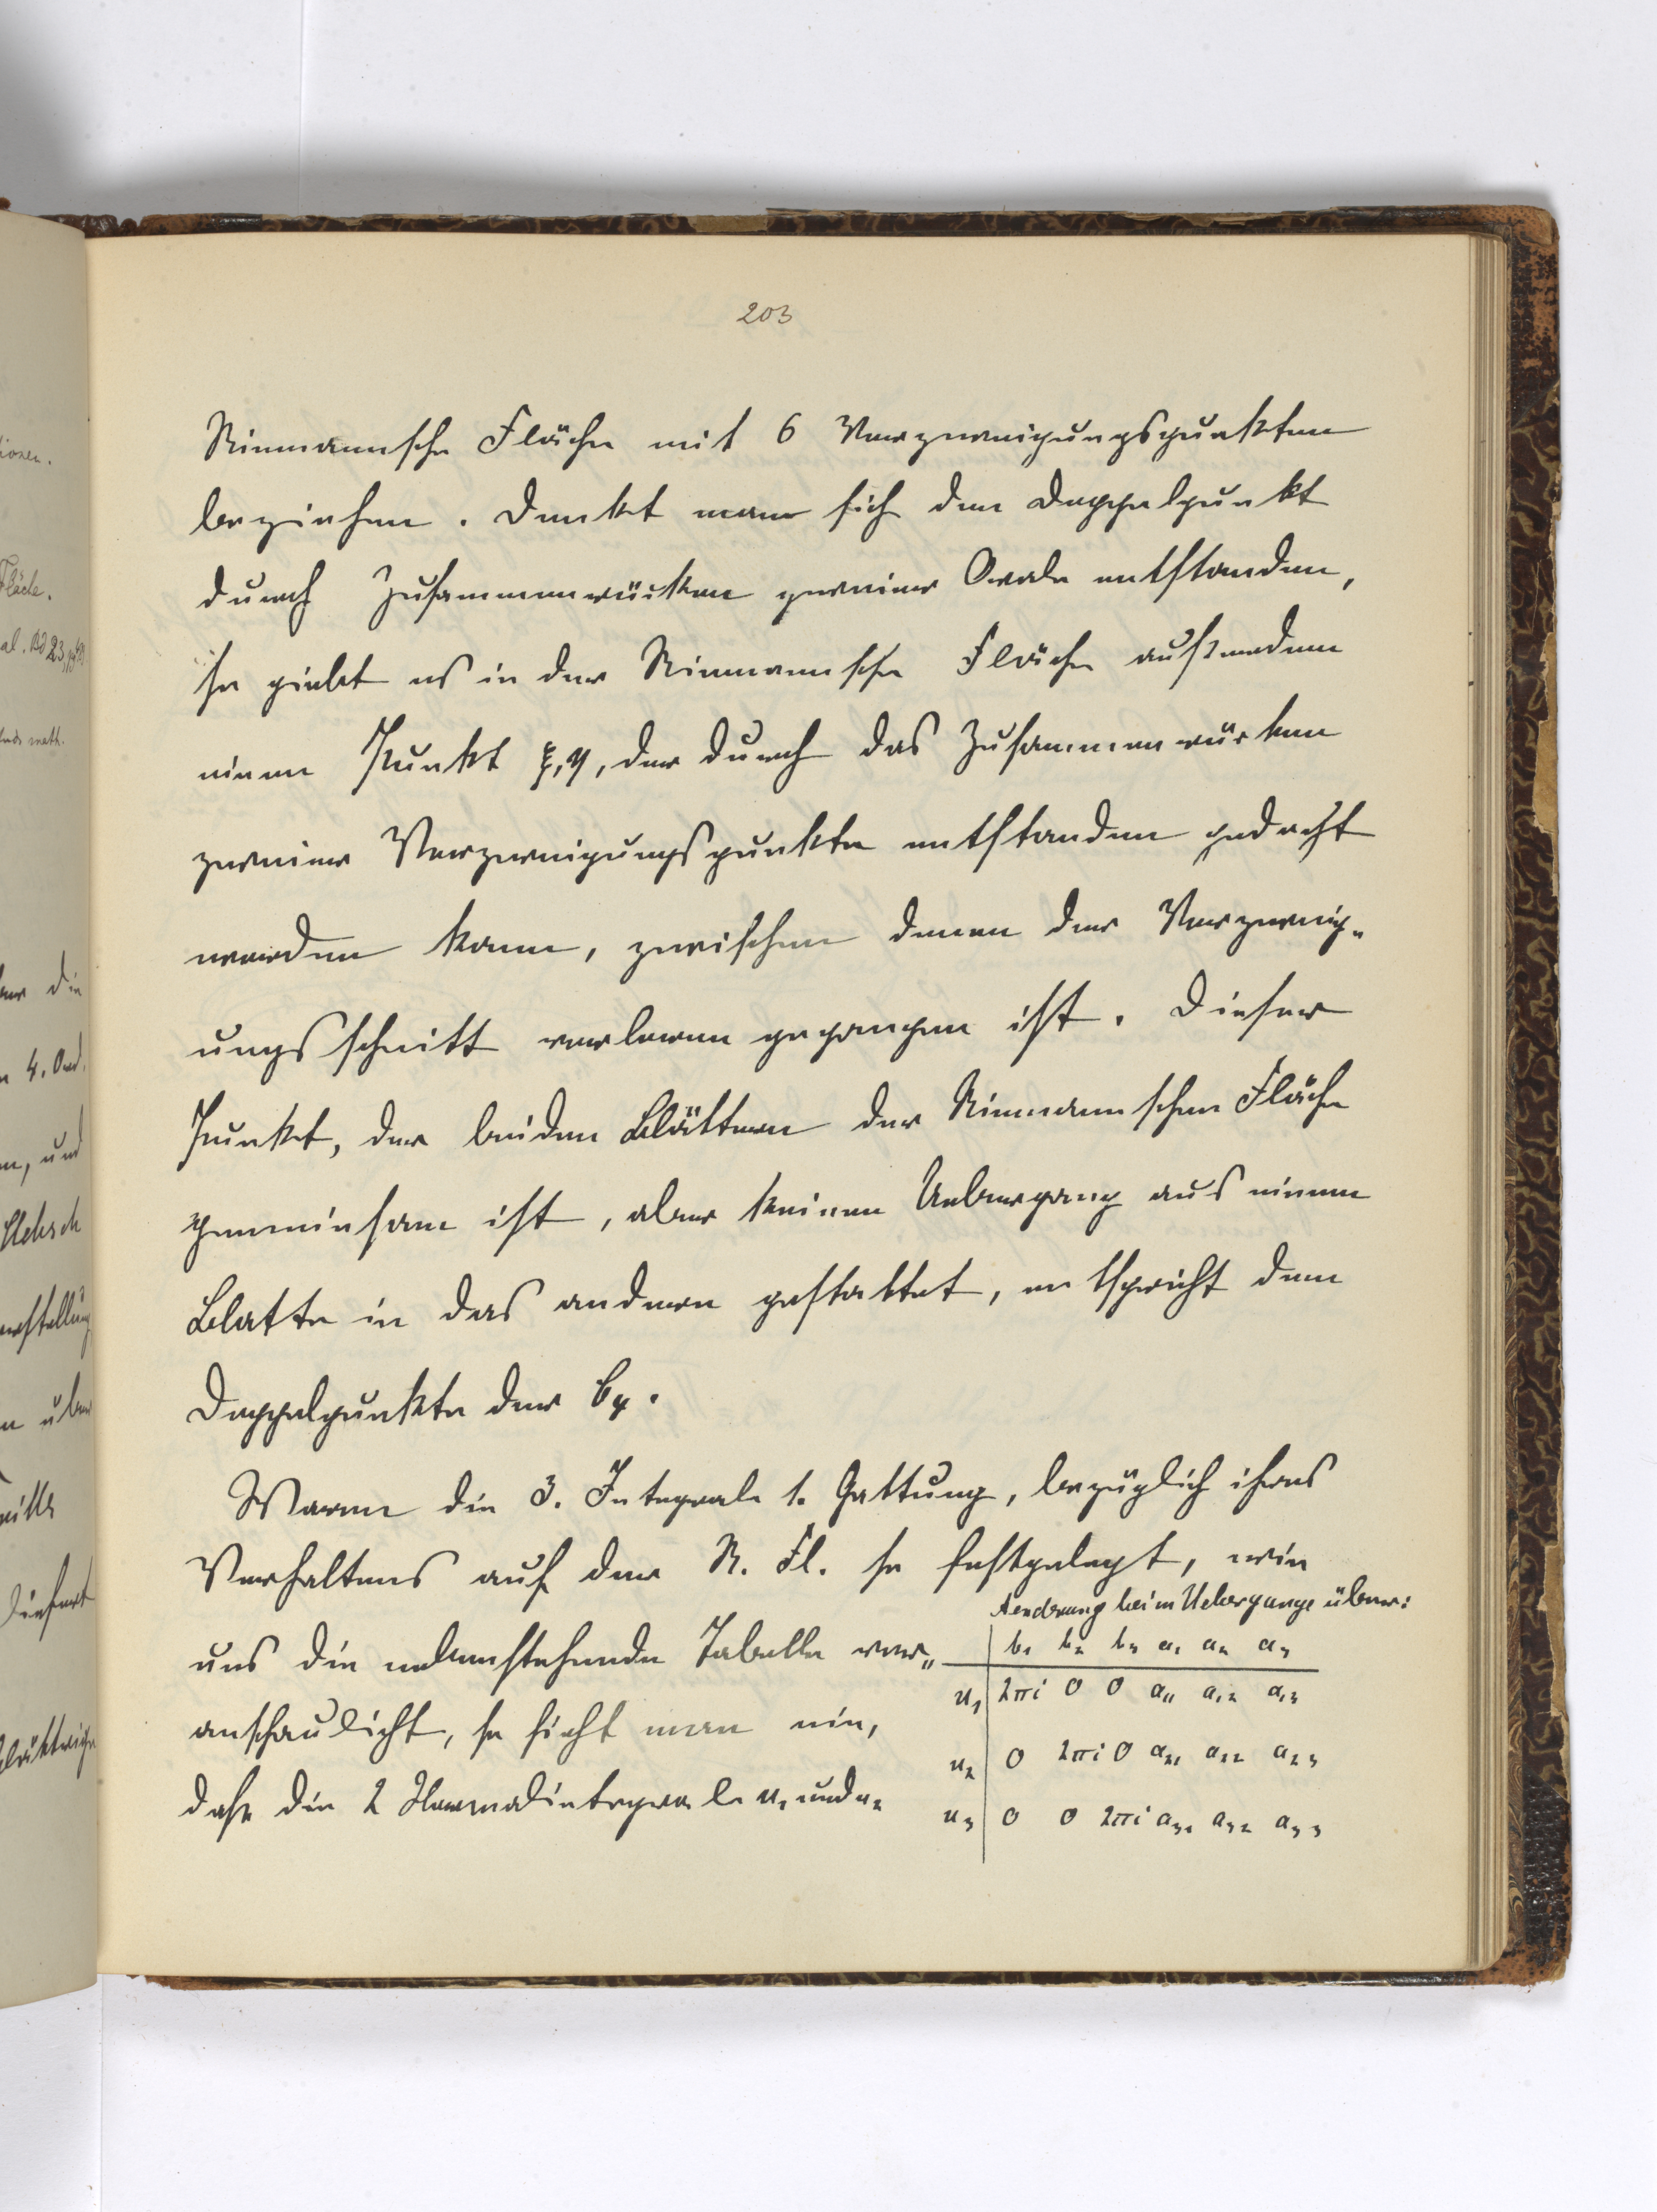 203
Riemannsche Fläche mit 6 Verzweigungspunkten
beziehen. Denkt man sich den Doppelpunkt
durch Zusammenrücken zweier Ovale entstanden,
so giebt es in der Riemannsche Fläche außerdem
einen Punkt ξ, η, der durch das Zusammenrücken
zweier Verzweigungspunkte entstanden gedacht
werden kann, zwischen denen der Verzweig-
ungsschnitt verloren gegangen ist. Dieser
Punkt, der beiden Blättern der Riemannschen Fläche
gemeinsam ist, aber keinen Uebergang aus einem
Blatte in das andere gestattet, entspricht dem
Doppelpunkte der C₄.
Waren die 3. Integrale 1. Gattung, bezüglich ihres
Verhaltens auf der R. Fl. so festgelegt, wie
uns die nebenstehende Tabelle ver-
anschaulicht, so sieht man ein,
daß die 2 Normalintegrale u₁ und u₂
Aenderung beim Uebergange über:
b₁ b₂ b₃ a₁ a₂ a₃
u₁ 2πi 0 0 a₁₁ a₁₂ a₁₃
u₂ 0 2πi 0 a₂₁ a₂₂ a₂₃
u₃ 0 0 2πi a₃₁ a₃₂ a₃₃